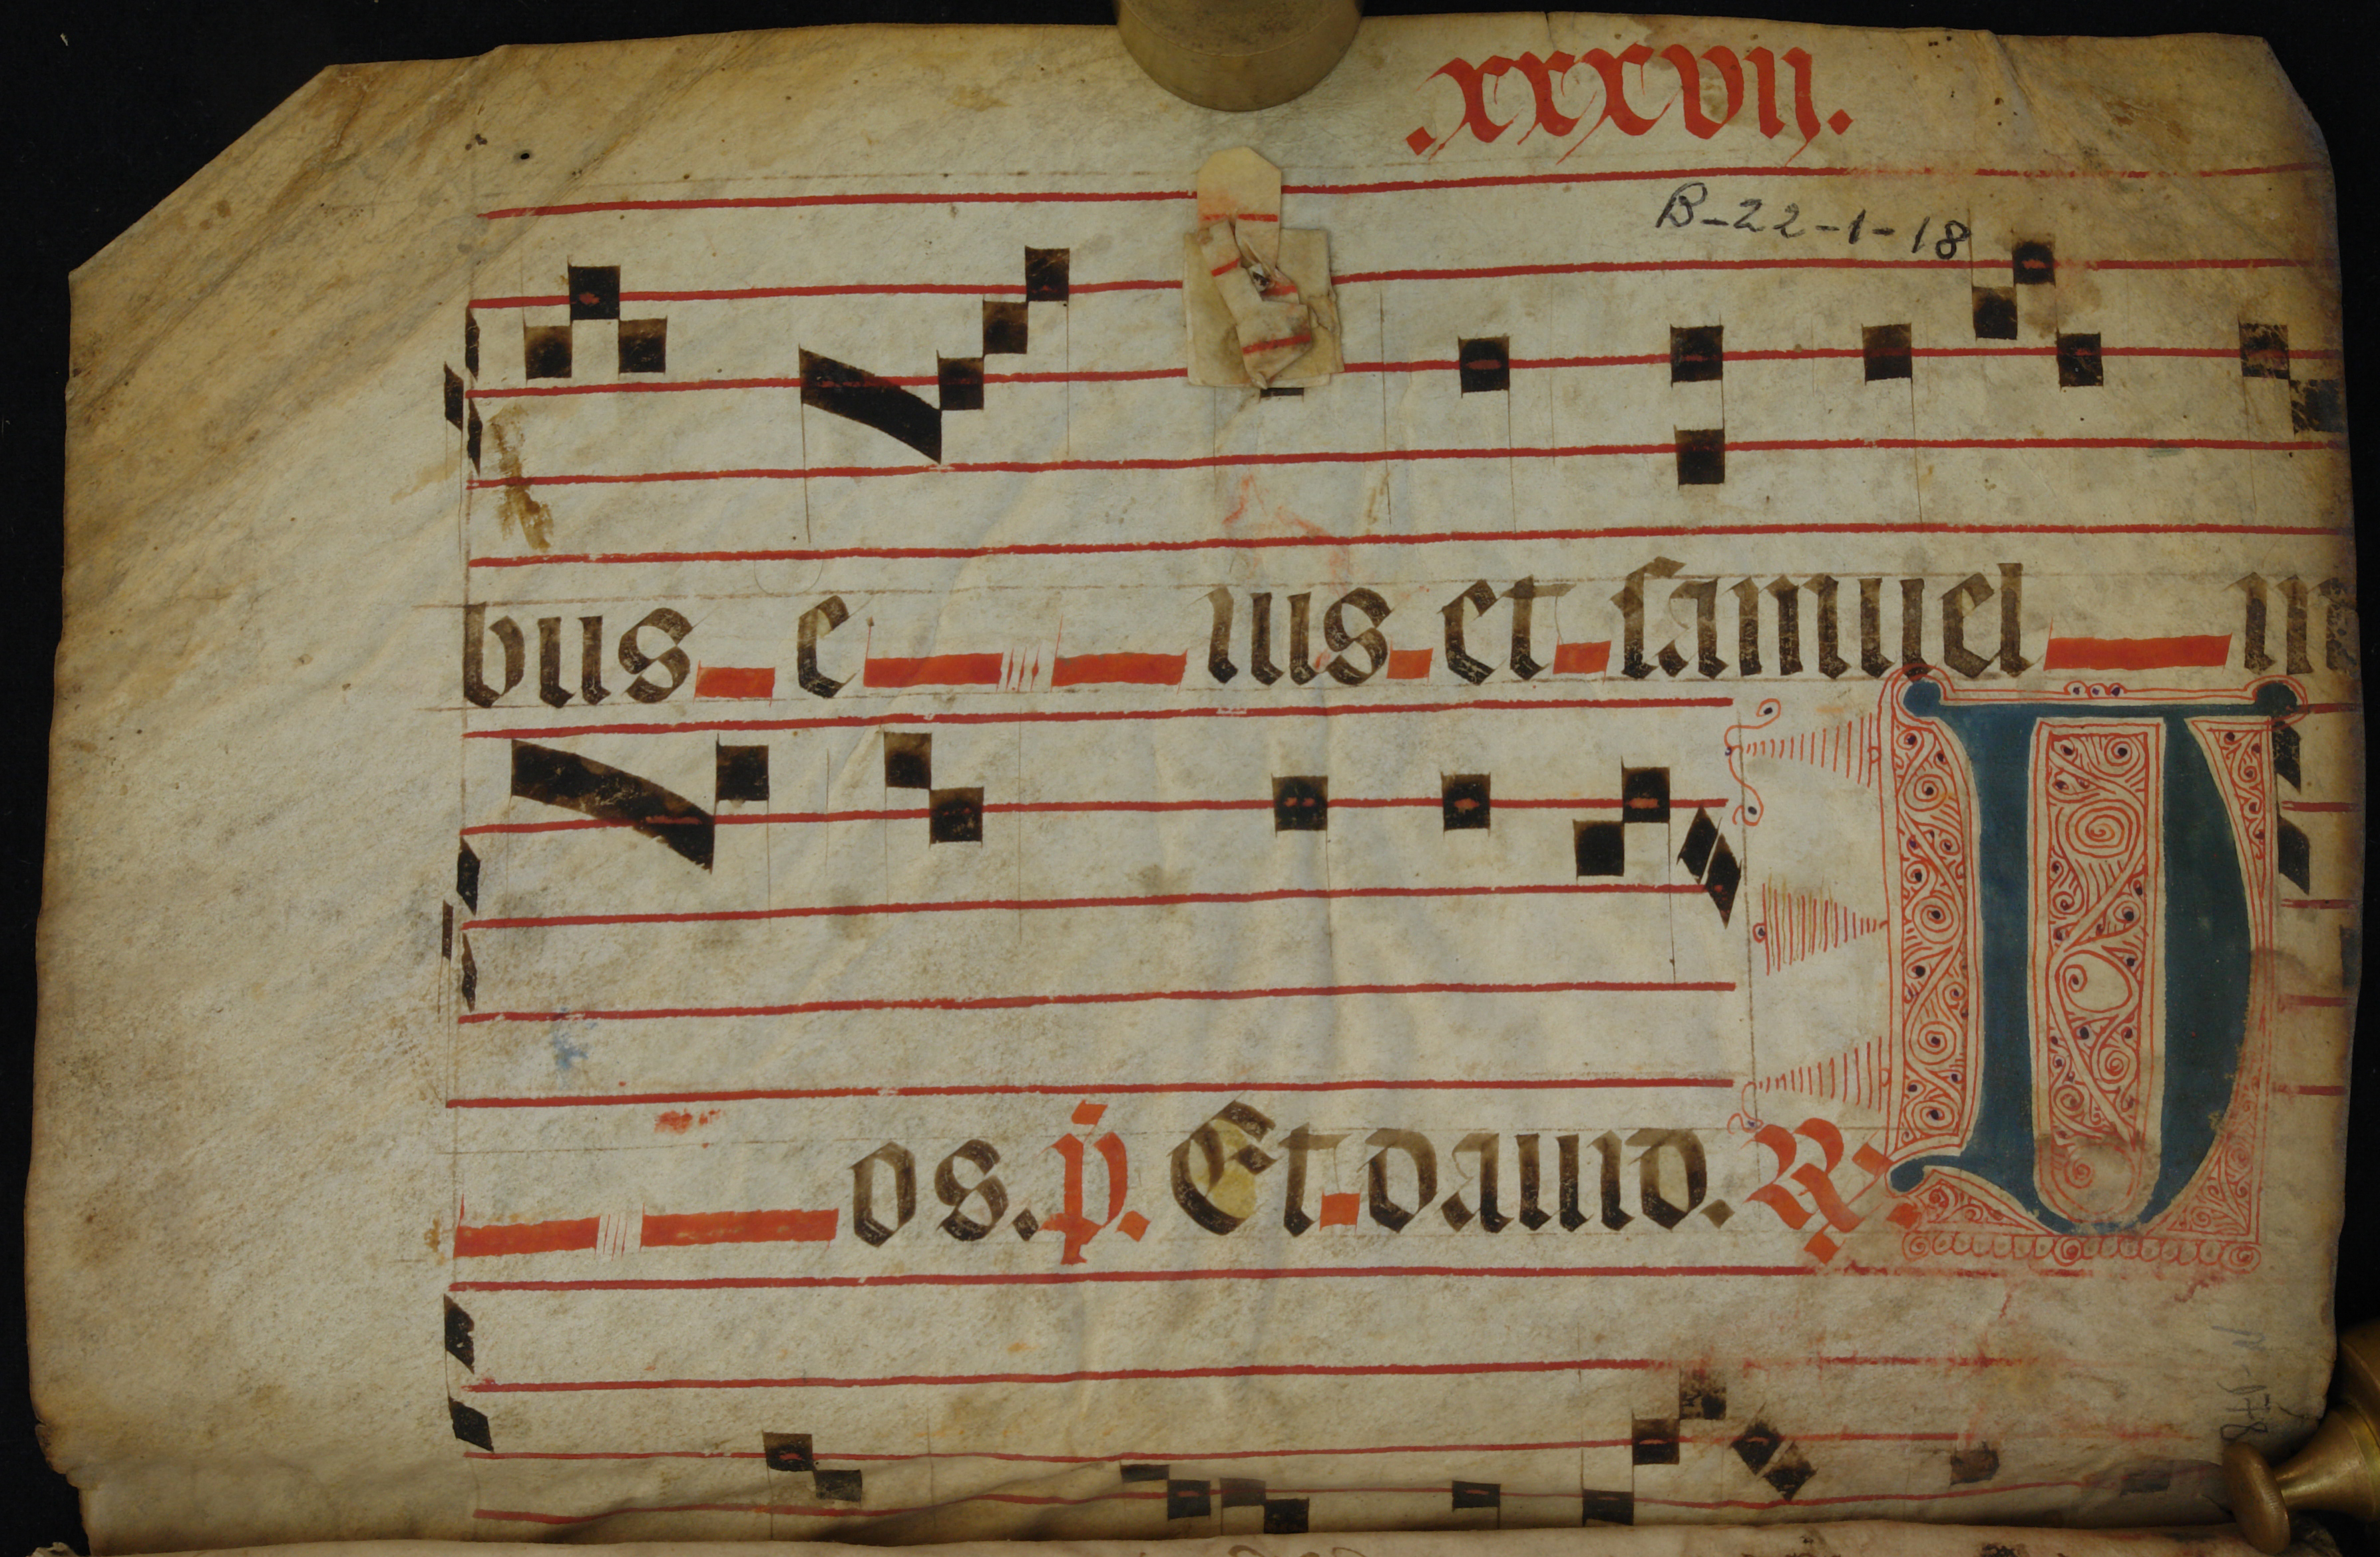 .xxxvii.
B-22-1-18
bus e ius et samuel in
os. p̄. Et dauid. R. D